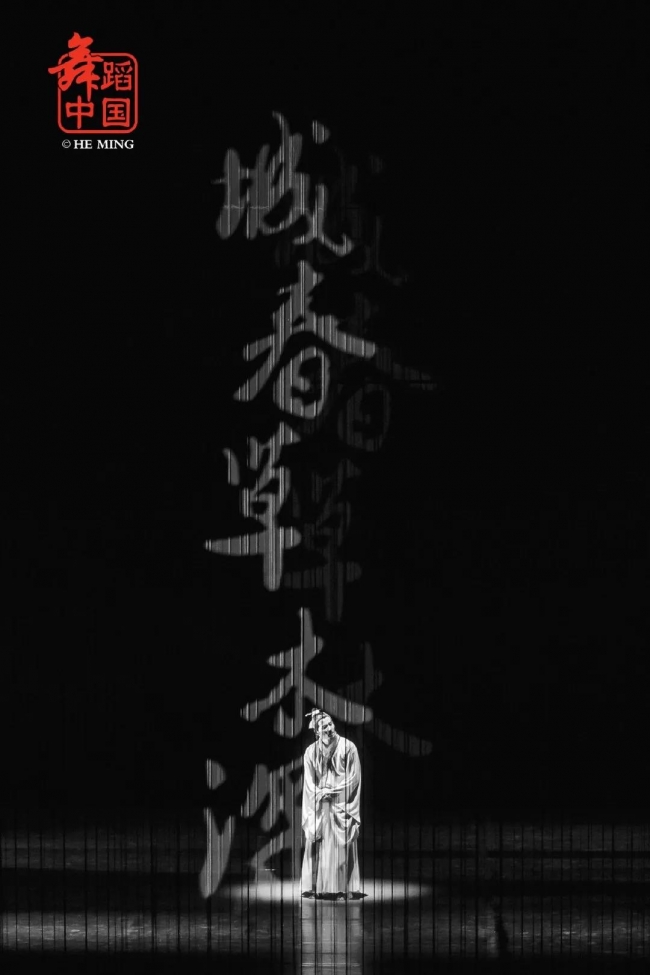 舞蹈
中国
© HE MING
城春草木深